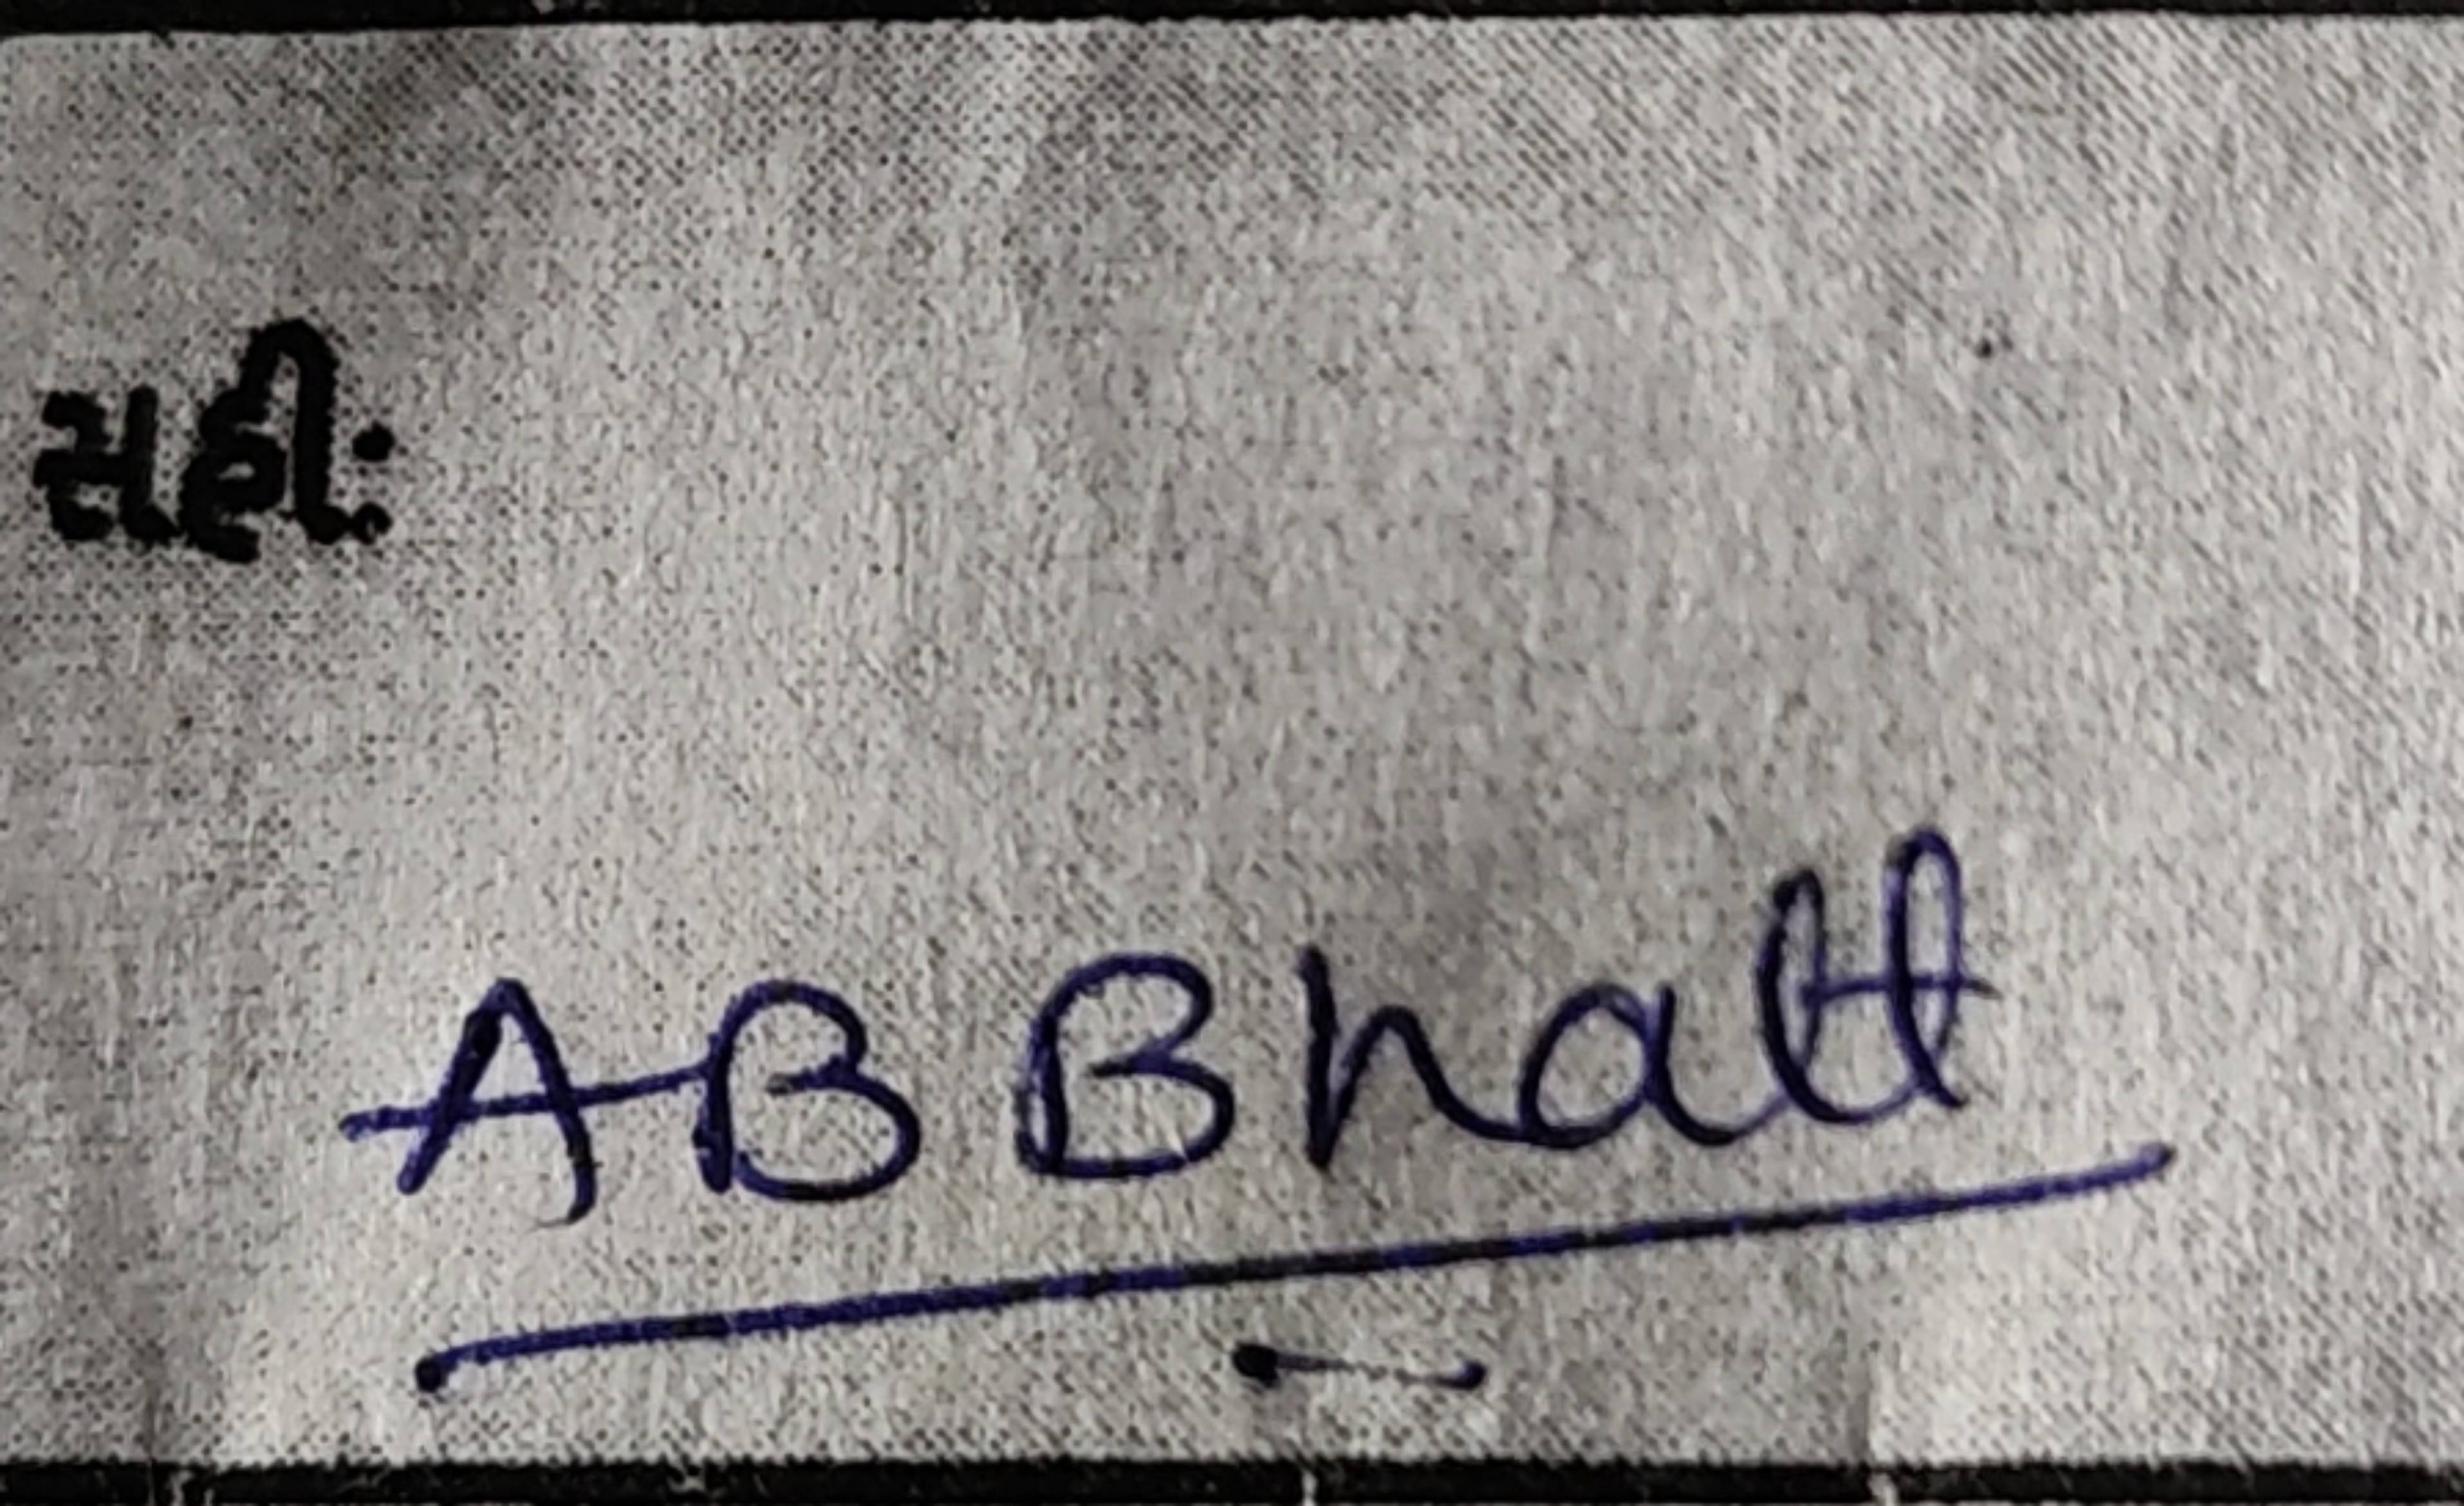 સહી:
A B Bhatt